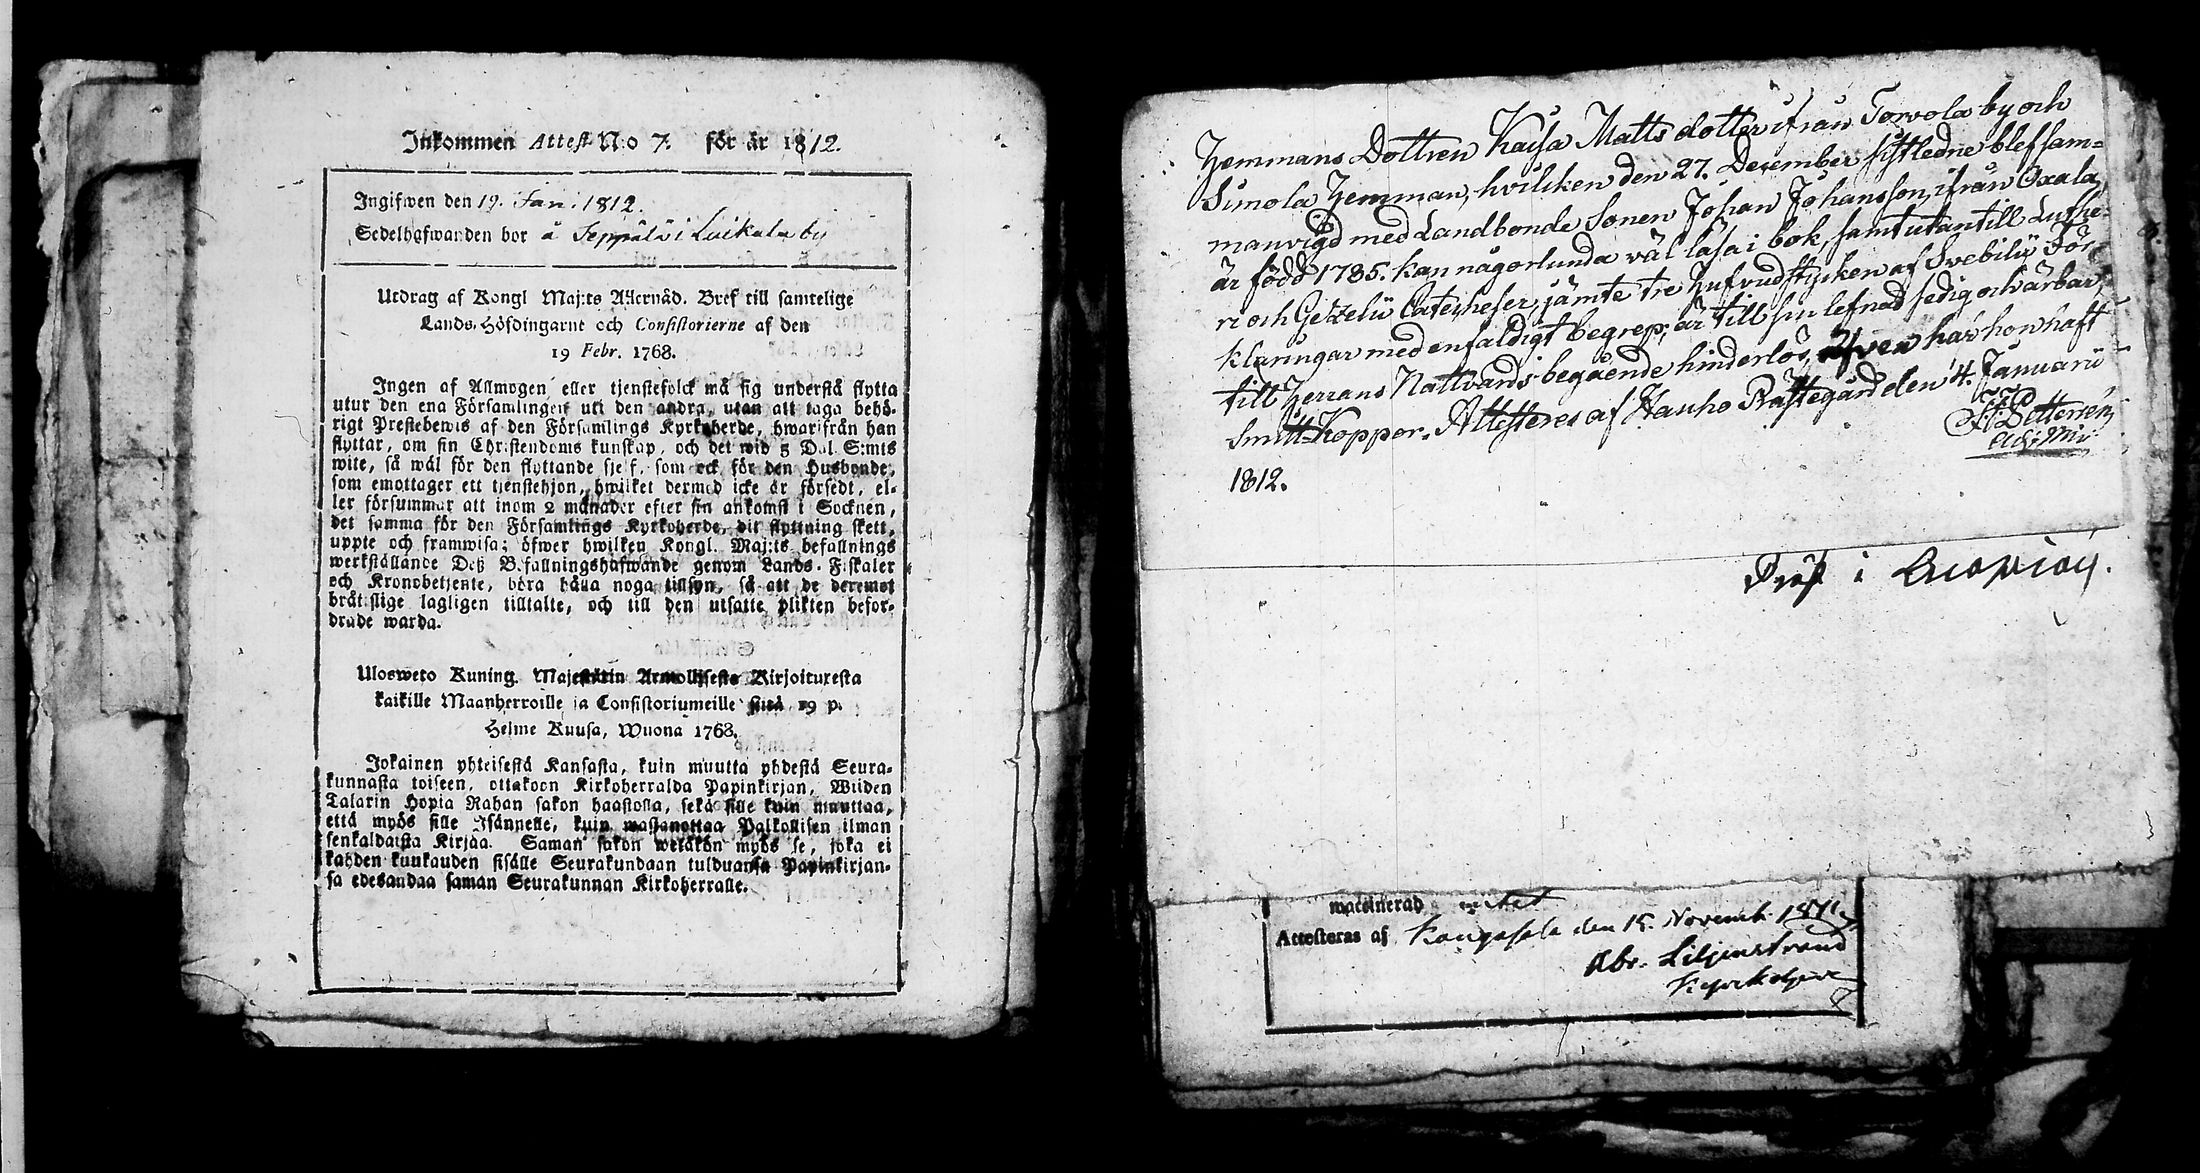 Inkommen Attest N:o 7. för år 1812.
Ingifwen den 19. Jan: 1812.
Sedelhafwanden bor å Seppälä i Luikala by
Utdrag af Kongl Maj:ts Allernåd. Bref till samtelige
Lands-Höfdingarne och Consistorierne af den
19 Febr. 1768.
Ingen af Allmogen eller tjenstefolck må sig understå flytta
utur den ena Församlingen uti den andra, utan att taga behö-
rigt Prestebewis af den Församlings Kyrkoherde, hwarifrån han
flyttar, om sin Christendoms kunskap, och det wid 5 Dal. S:mts
wite, så wäl för den flyttande sjelf, som ock för den Husbonde,
som emottager ett tjenstehjon, hwilket dermed icke är försedt, el-
ler försummar att inom 2 månader efter sin ankomst i Socknen,
det samma för den Församlings Kyrkoherde, dit flyttning skett,
uppte och framwisa; öfwer hwilken Kongl. Maj:ts befallnings
werkställande Deß Befallningshafwande genom Lands-Fiskaler
och Kronobetjente, böra hålla noga tillsyn, så att de deremot
bråtslige lagligen tilltalte, och till den utsatte plikten befor-
drade warda.
Ulosweto Kuning. Majestätin Armollisesta Kirjoituresta
kaikille Maanherroille ja Consistoriumeille siitä 19 p.
Helme Kuusa, Wuona 1768.
Jokainen yhteisestä Kansasta, kuin muutta yhdestä Seura-
kunnasta toiseen, ottakoon Kirkoherralda Papinkirjan, Wiiden
Talarin Hopia Rahan sakon haastolla, sekä sille kuin muuttaa,
että myös sille Isännelle, kuin wastanottaa Palkollisen ilman
senkaldaista Kirjaa. Saman sakon wetäkön myös se, joka ei
kahden kuukauden sisälle Seurakundaan tulduansa Papinkirjan-
sa edesandaa saman Seurakunnan Kirkoherralle.
Hemmans Dottren Kaisa Matts dotter ifrån Torvola by och
Simola Hemman, hvilcken den 27. December sistledne blef sam-
manvigd med Landbonde Sonen Johan Johansson, ifrån Oxala,
är född 1785. kan någorlunda väl läsa i bok, samt utantill Luthe-
ri och Gezelii Catecheser, jämte tre Hufvudstycken af Svebilii För-
klaringar med enfaldigt begrep; är till sin lefnad sedig och ärbar,
till Herrans Nattvards begående hinderlös, Äfven har hon haft
Smitt Koppor. Attesteres af Hauho Prästegård den 4. Januarii
1812.
Adj: Min:
Präst i
Attesteras af Kangasala den 15. Novemb. 1811,
Abr. Liljenstrand
Kyrkoherde